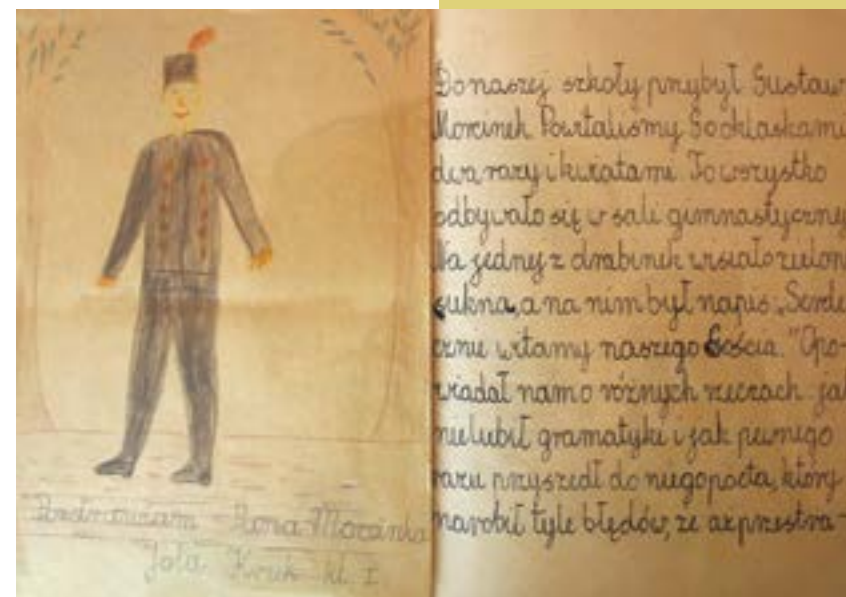 Pozdrawiam Pana Morcinka
Jola Kruk kl. I
Do naszej szkoły przybył Gustaw
Morcinek Powitaliśmy Go oklaskami
dwa razy i kwiatami. To wszystko
odbywało się w sali gimnastycznej
Na jednej z drabinek wisiało zielon
sukna, a na nim był napis „Serde
cznie witamy naszego Gościa." Opo-
wiadał nam o różnych rzeczach: jak
nie lubił gramatyki i jak pewnego
razu przyszedł do niego poeta, który
narobił tyle błędów, że aż przestra-